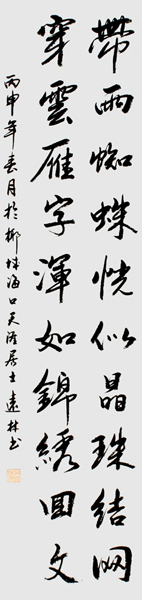 帶雨蜘蛛恍似晶珠結网
穿雲雁字渾如錦綉回文
丙申年春月於椰城海口天涯居士遠林书